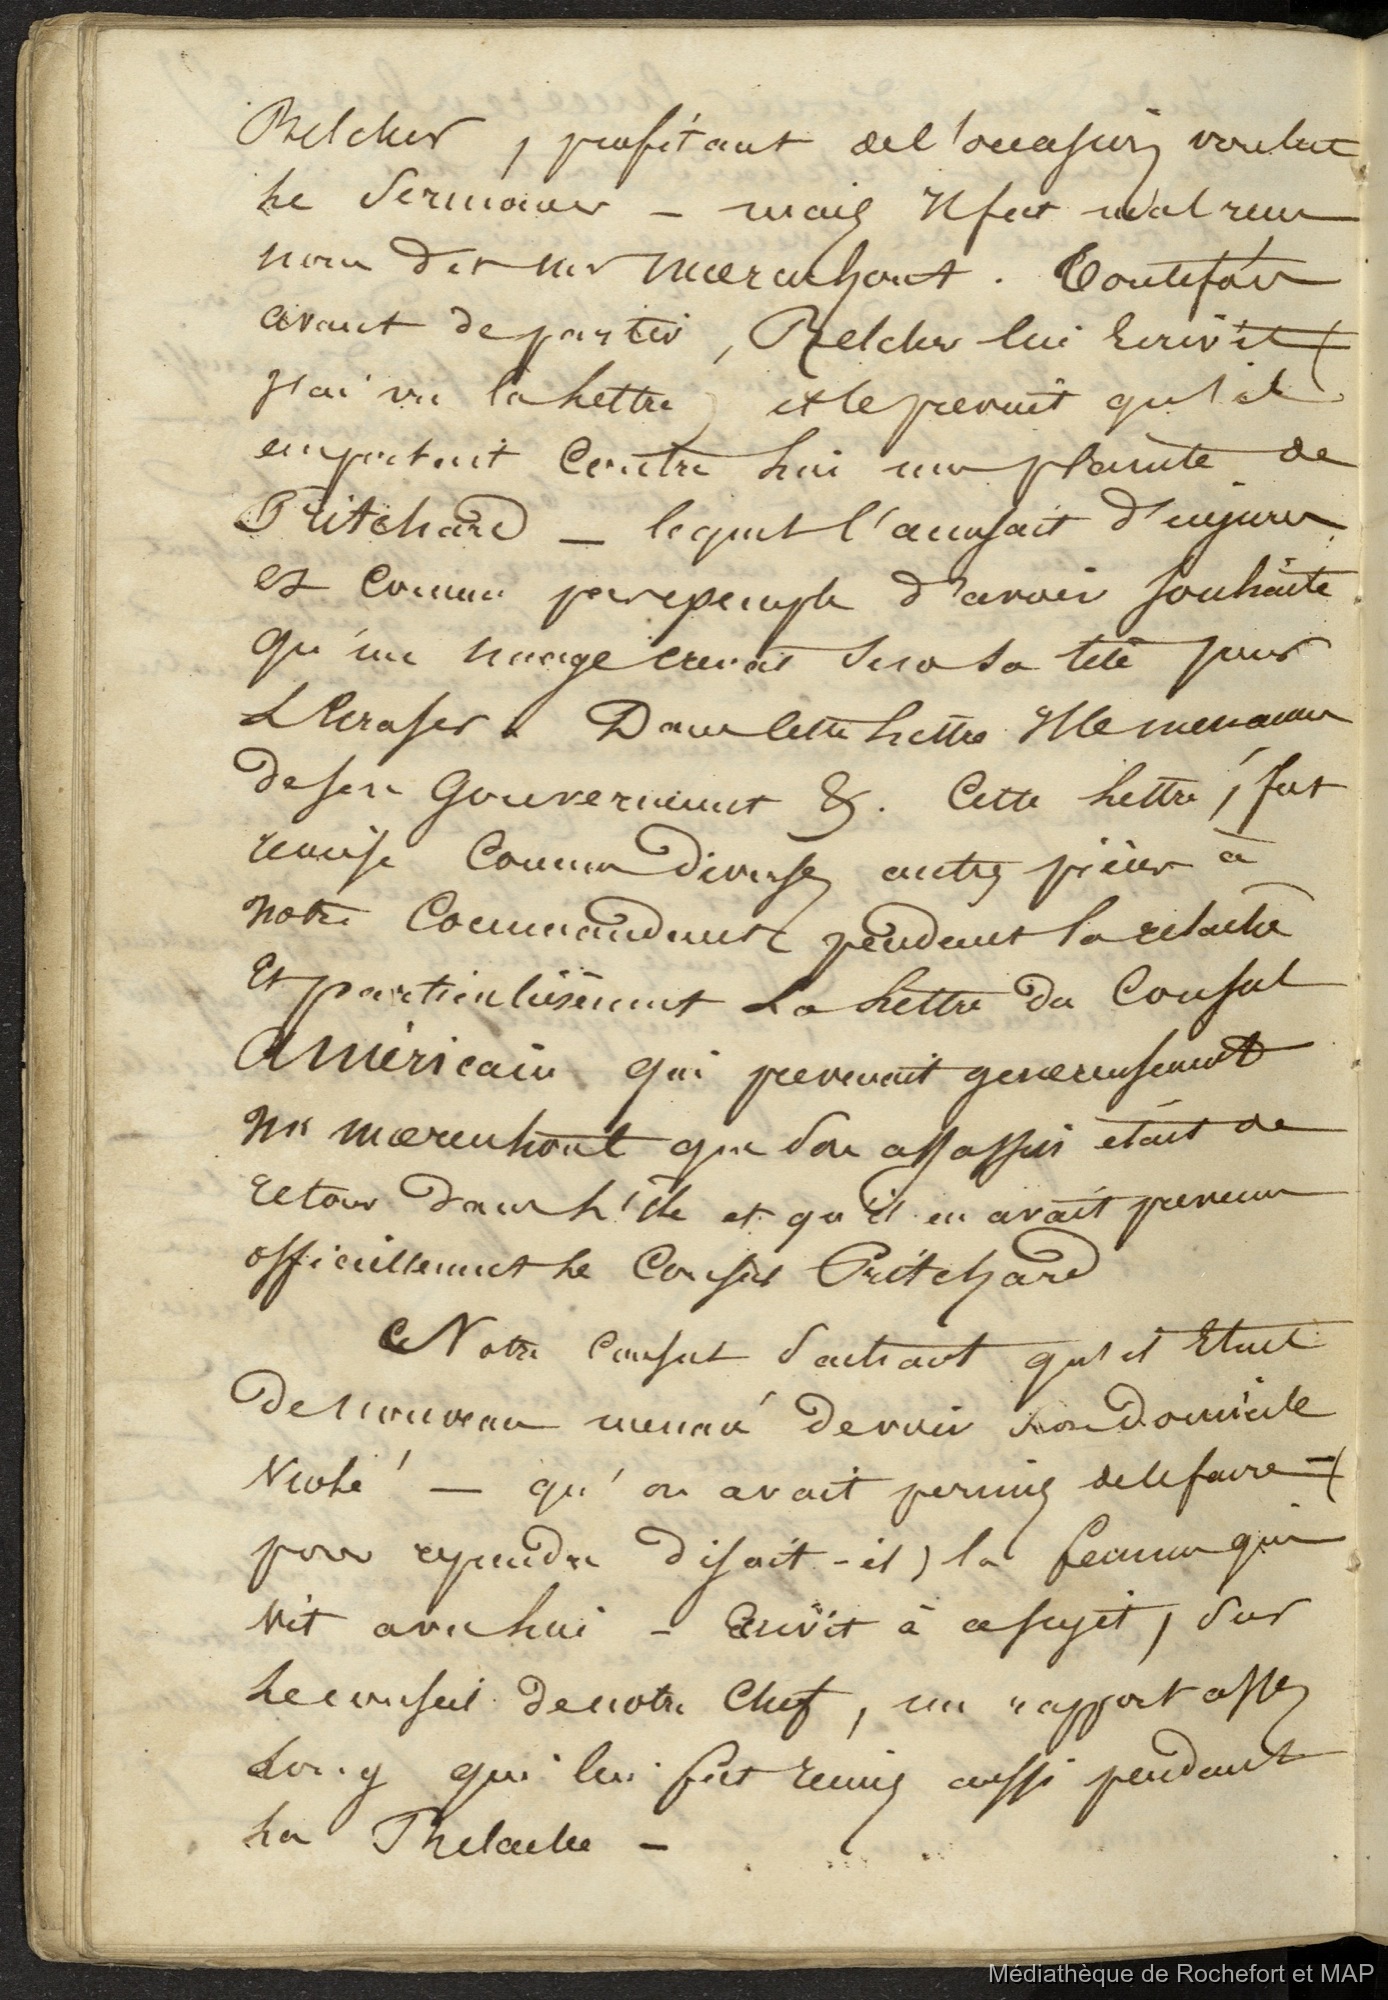 Belcher, profitant de l'occasion voulut
le sermoner – mais Il fut mal reçu
nous dit mr Mœrenhout. Toutefois
avant de partir, Belcher lui Ecrivit (
j'ai vu la lettre) et le prevint qu'il
emportait Contre lui une plainte de
Pritchard – lequel l'accusait d'injures
et Comme par exemple d'avoir souhaité
qu'un nuage crevat sur sa tête pour
L'Ecraser. Dans cette lettre Il le menacer
de son Gouvernement &. Cette lettre, fut
remise Comme diverses autres pièces à
notre Commandant pendant la relache
Et particulièrement La lettre du Consul
Américain qui prevenait genereusement
Mr Mœrenhout que son assassin était de
retour dans l'île et qu'il en avait prevenu
officiellement le Consul Pritchard
Notre Consul sachant qu'il Etait
de nouveau menacé de voir son Domicile
Violé – qu'on avait permis de le faire – (
pour repondre disait-il) la femme qui
vit avec lui – Ecrivit à ce sujet, sur
le conseil de notre Chef, un rapport assez
Long qui lui fut remis aussi pendant
la Relache –
Médiathèque de Rochefort et MAP